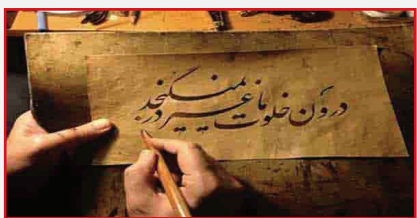 درون خلوت ما غیر در نمیگنجد